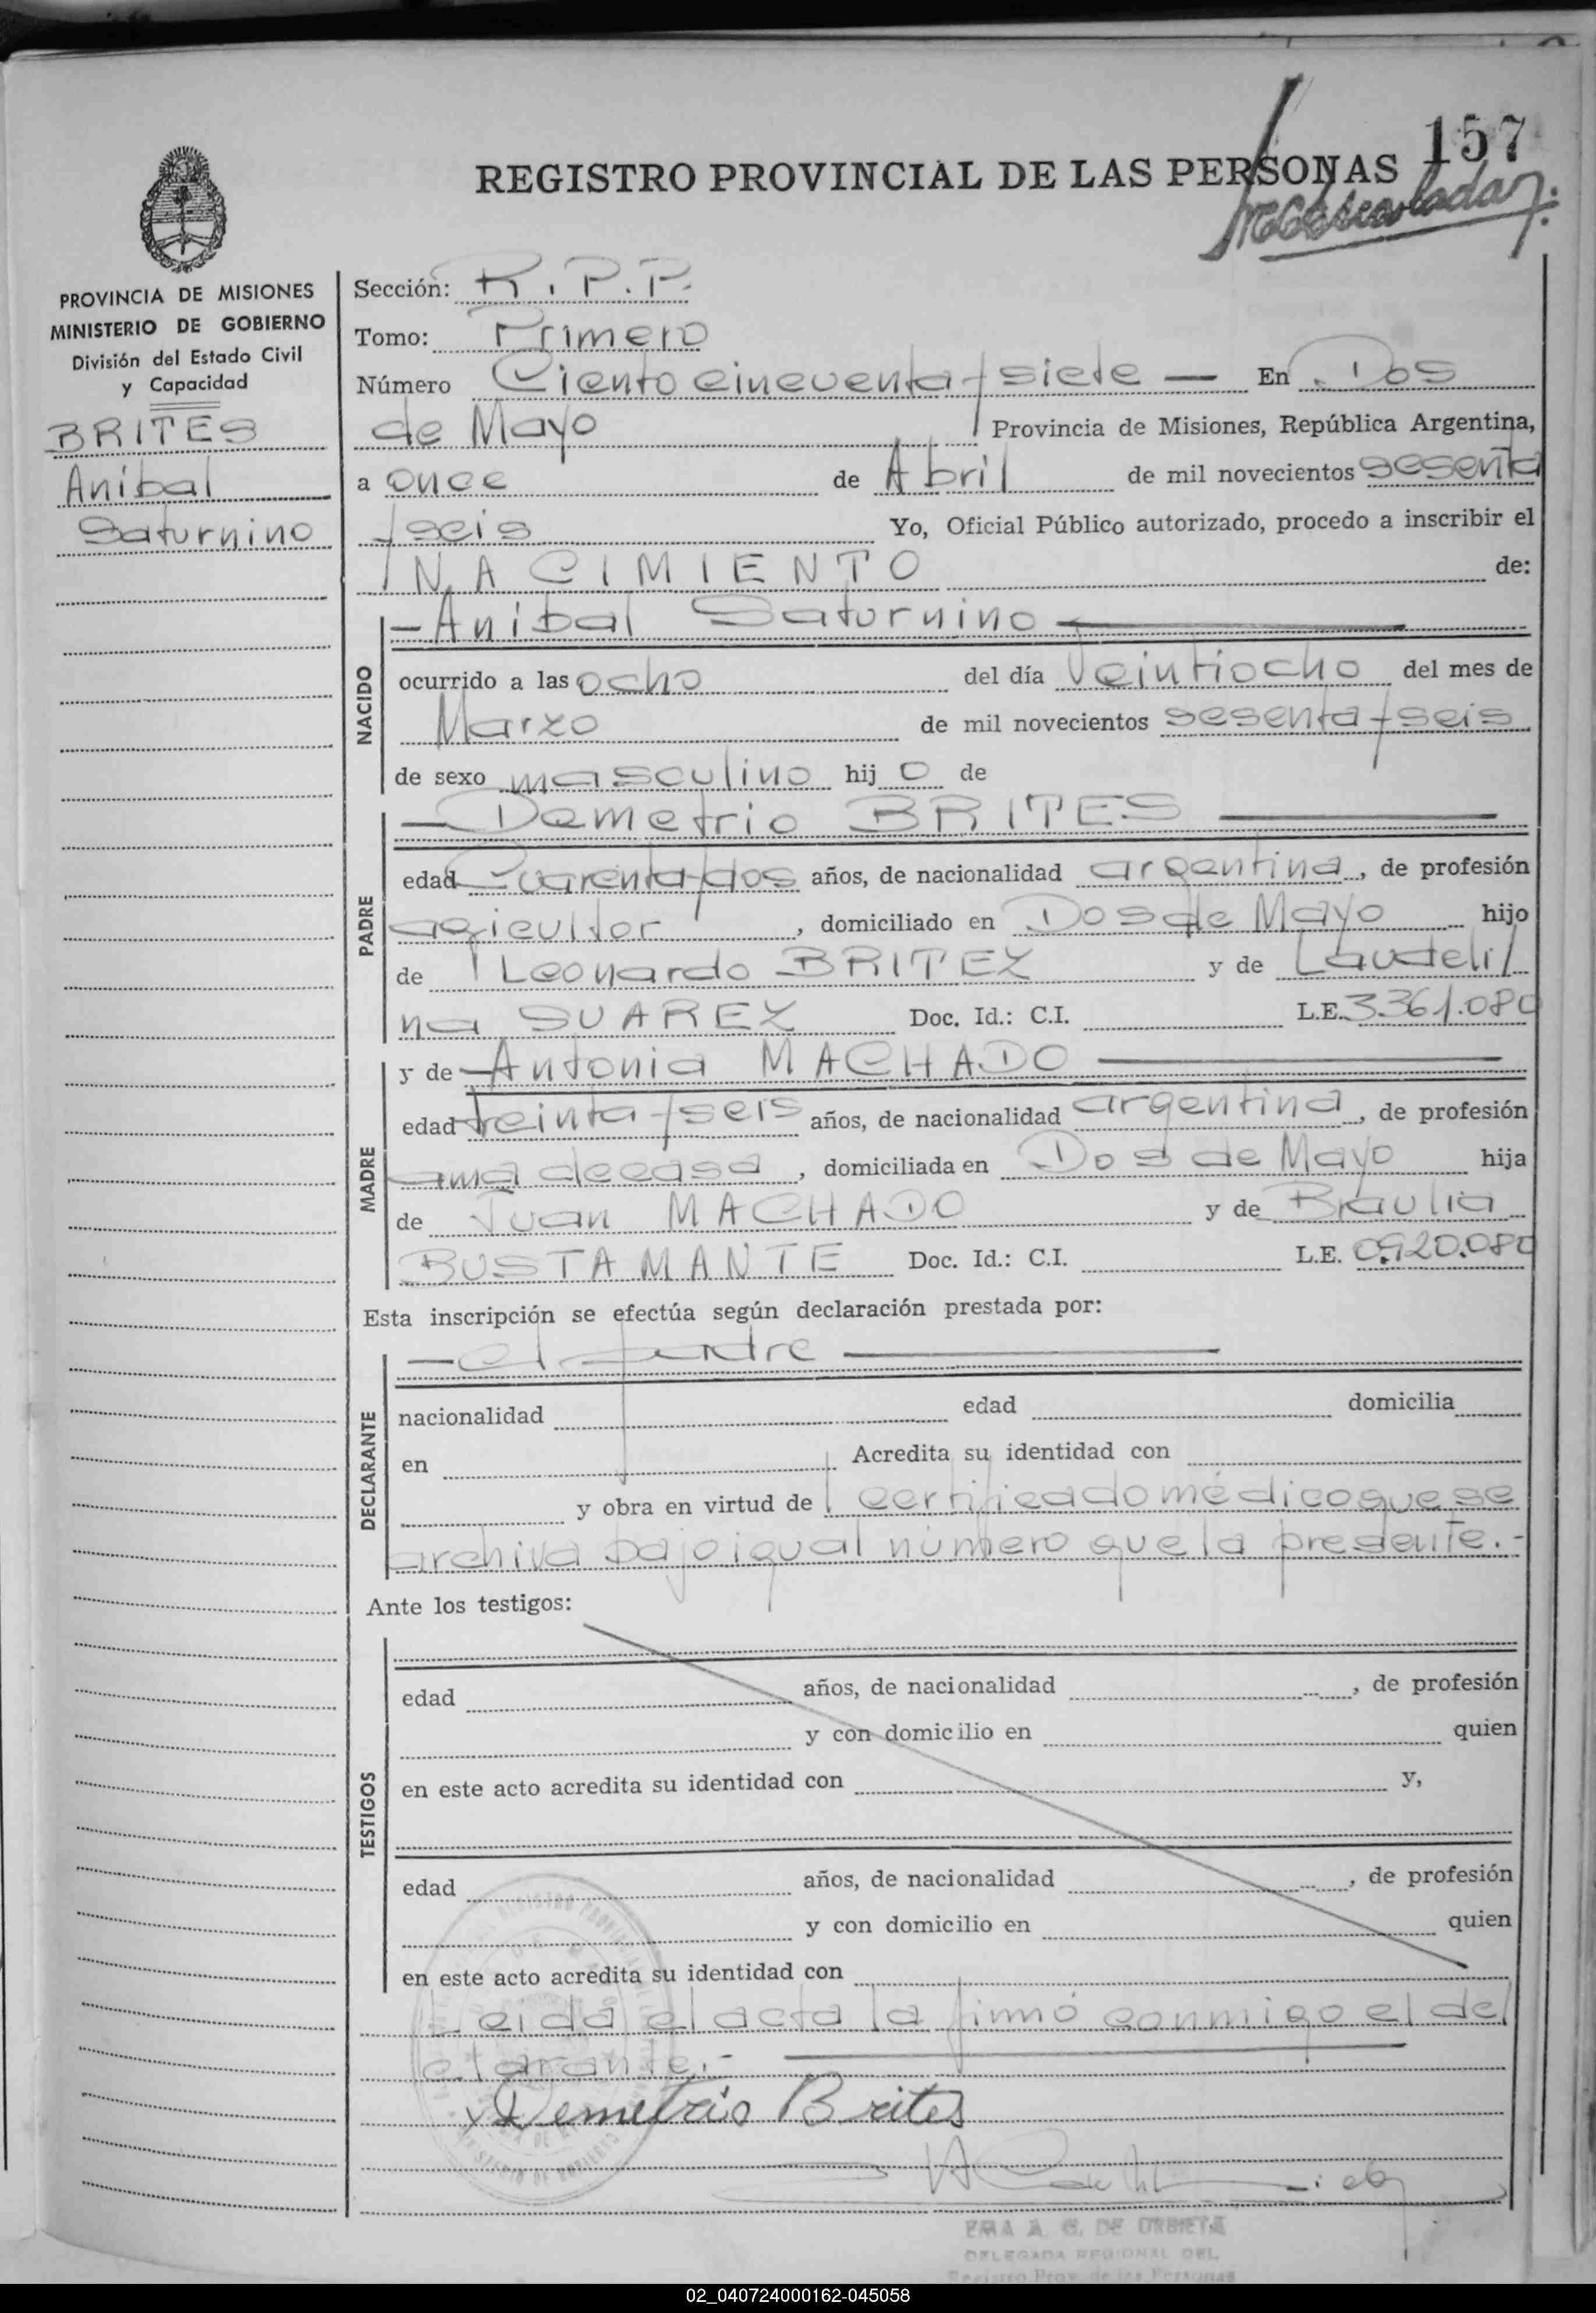 157
REGISTRO PROVINCIAL DE LAS PERSONAS
PROVINCIA DE MISIONES
MINISTERIO DE GOBIERNO
División del Estado Civil
y Capacidad
BRITES
Anibal
Saturnino
Sección: R.P.P.
Tomo: Primero
Número Ciento cincuenta y siete — En Dos
de Mayo Provincia de Misiones, República Argentina,
a once de Abril de mil novecientos sesenta
y seis Yo, Oficial Público autorizado, procedo a inscribir el
NACIMIENTO de:
NACIDO
— Anibal Saturnino —
ocurrido a las ocho del día veintiocho del mes de
Marzo de mil novecientos sesenta y seis
de sexo masculino hij o de
PADRE
— Demetrio BRITES —
edad Cuarenta y dos años, de nacionalidad argentina, de profesión
agricultor, domiciliado en Dos de Mayo hijo
de Leonardo BRITEZ y de Laudeli/
na SUAREZ Doc. Id.: C.I. L.E. 3.361.080
MADRE
y de — Antonia MACHADO —
edad treinta y seis años, de nacionalidad argentina, de profesión
ama de casa, domiciliada en Dos de Mayo hija
de Juan MACHADO y de Braulia
BUSTAMANTE Doc. Id.: C.I. L.E. 0.920.080
Esta inscripción se efectúa según declaración prestada por:
DECLARANTE
— el padre —
nacionalidad edad domicilia
en Acredita su identidad con
y obra en virtud de certificado médico que se
archiva bajo igual número que la presente.-
Ante los testigos:
TESTIGOS
edad años, de nacionalidad , de profesión
y con domicilio en quien
en este acto acredita su identidad con y,
edad años, de nacionalidad , de profesión
y con domicilio en quien
en este acto acredita su identidad con
Leida el acta la firmó conmigo el de
clarante.-
Demetrio Brites
DELEGADA REGIONAL DEL
Registro Prov. de las Personas
02_040724000162-045058